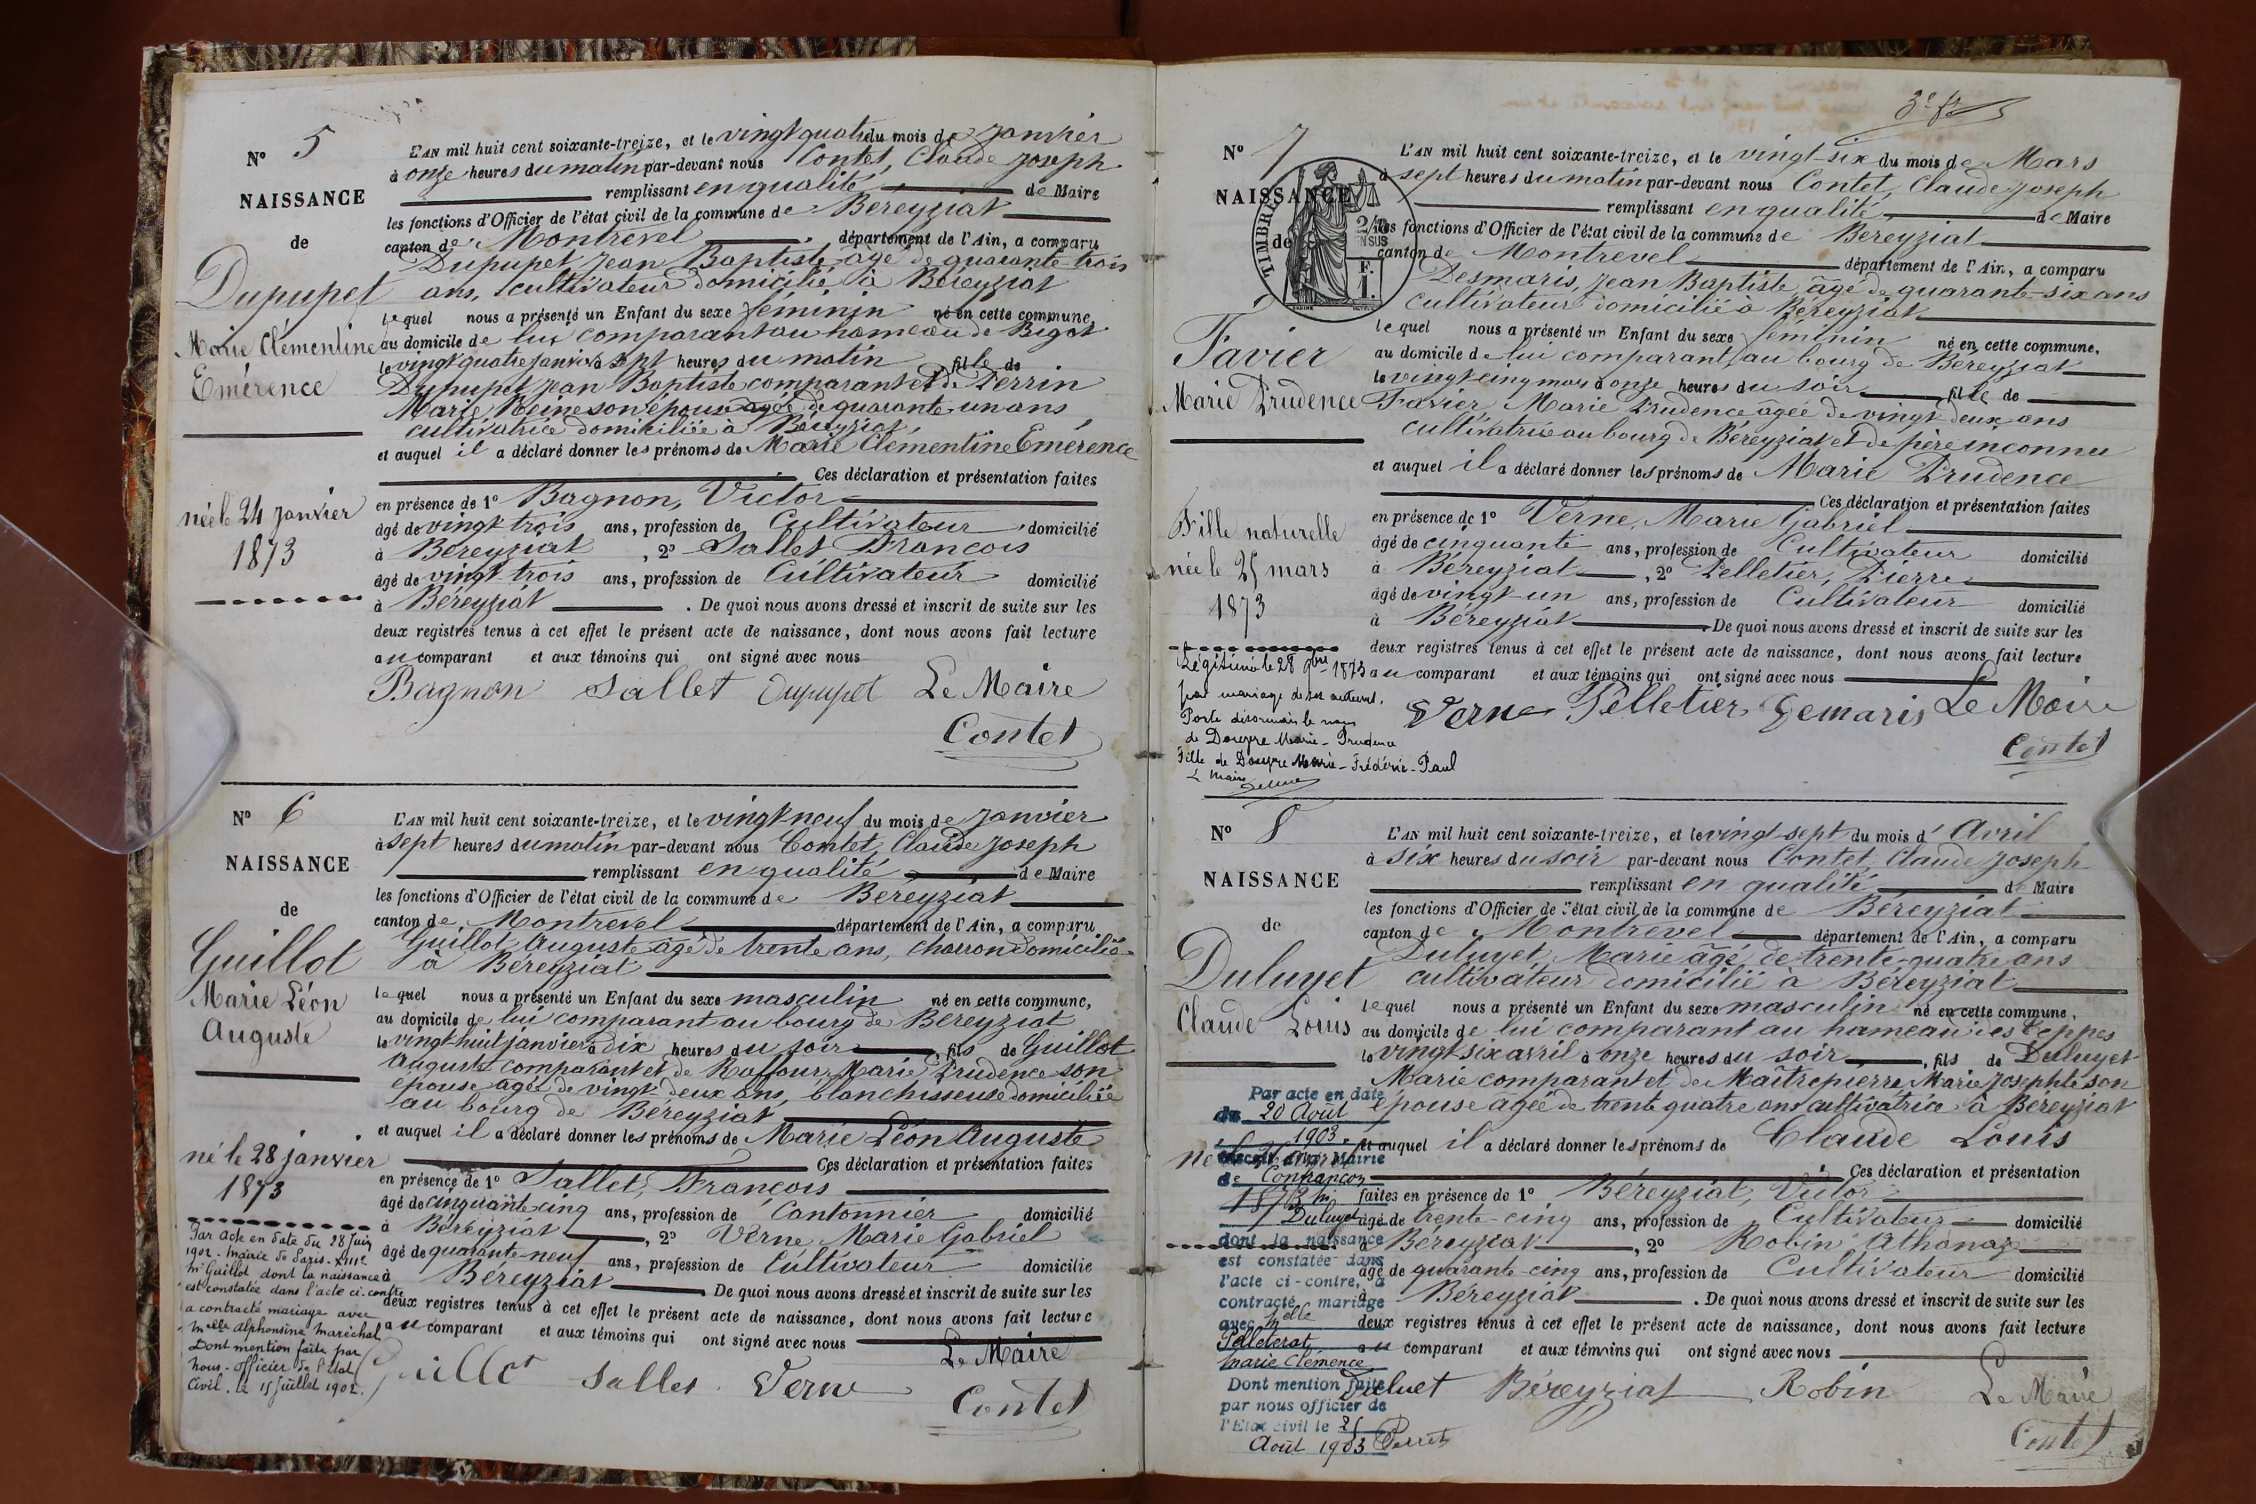 N° 5
NAISSANCE
de
Dupupet
Marie Clémentine
Emérence
née le 24 janvier
1873
L'AN mil huit cent soixante-treize, et le vingt quatre du mois de Janvier
à onze heures du matin par-devant nous Contet, Claude Joseph
remplissant en qualité de Maire
les fonctions d'Officier de l'état civil de la commune de Béreyziat
canton de Montrevel département de l'Ain, a comparu
Dupupet Jean Baptiste âgé de quarante-trois
ans, cultivateur domicilié à Béreyziat
lequel nous a présenté un Enfant du sexe féminin né en cette commune,
au domicile de lui comparant au hameau de Bigot
le vingt quatre janvier à sept heures du matin fille de
Dupupet Jean Baptiste comparant et de Perrin
Marie Reine son épouse agée de quarante-un ans
cultivatrice domiciliée à Béreyziat,
et auquel il a déclaré donner les prénoms de Marie Clémentine Emérence
Ces déclaration et présentation faites
en présence de 1° Bagnon, Victor
âgé de vingt trois ans, profession de Cultivateur domicilié
à Béreyziat, 2° Sallet François
âgé de vingt trois ans, profession de Cultivateur domicilié
à Béreyziat. De quoi nous avons dressé et inscrit de suite sur les
deux registres tenus à cet effet le présent acte de naissance, dont nous avons fait lecture
au comparant et aux témoins qui ont signé avec nous
Bagnon Sallet Dupupet Le Maire
Contet
N° 6
NAISSANCE
de
Guillot
Marie Léon
Auguste
né le 28 janvier
1873
Par acte en date du 28 Juin
1902. Mairie de Paris. XIIIe
Mr Guillot dont la naissance
est constatée dans l'acte ci-contre
a contracté mariage avec
Melle Alphonsine Maréchal
Dont mention faite par
Nous. Officier de l'Etat
Civil. Le 15 Juillet 1902.
L'AN mil huit cent soixante-treize, et le vingt neuf du mois de Janvier
à sept heures du matin par-devant nous Contet, Claude Joseph
remplissant en qualité de Maire
les fonctions d'Officier de l'état civil de la commune de Béreyziat
canton de Montrevel département de l'Ain, a comparu
Guillot, Auguste agé de trente ans, charron domicilié
à Béreyziat
lequel nous a présenté un Enfant du sexe masculin né en cette commune,
au domicile de lui comparant au bourg de Béreyziat
le vingt huit janvier à dix heures du soir, fils de Guillot
Auguste comparant et de Marie Prudence son
épouse agée de vingt deux ans, blanchisseuse domiciliée
au bourg de Béreyziat
et auquel il a déclaré donner les prénoms de Marie Léon Auguste
Ces déclaration et présentation faites
en présence de 1° Sallet, François
âgé de cinquante cinq ans, profession de Cantonnier domicilié
à Béreyziat, 2° Verne, Marie Gabriel
âgé de quarante-neuf ans, profession de Cultivateur domicilié
à Béreyziat De quoi nous avons dressé et inscrit de suite sur les
deux registres tenus à cet effet le présent acte de naissance, dont nous avons fait lecture
au comparant et aux témoins qui ont signé avec nous
Guillot Sallet Verne Le Maire
Contet
N° 7
NAISSANCE
de
TIMBRE
2/10
EN SUS
F.
1.
Favier
Marie Prudence
Fille naturelle
née le 25 mars
1873
Légitimée le 28 9bre 1873
par mariage de ses auteurs.
Porte désormais le nom
Marie-Prudence
Fille de Marie-Frédéric-Paul
L Maire
L'AN mil huit cent soixante-treize, et le vingt-six du mois de Mars
à sept heures du matin par-devant nous Contet, Claude Joseph
remplissant en qualité de Maire
les fonctions d'Officier de l'état civil de la commune de Béreyziat
canton de Montrevel département de l'Ain, a comparu
Desmaris, Jean Baptiste, âgé de quarante-six ans
cultivateur domicilié à Béreyziat
lequel nous a présenté un Enfant du sexe féminin né en cette commune,
au domicile de lui comparant, au bourg de Béreyziat
le vingt-cinq mars à onze heures du soir fille de
Favier, Marie Prudence âgée de vingt deux ans
cultivatrice au bourg de Béreyziat et de père inconnu
et auquel il a déclaré donner les prénoms de Marie Prudence
Ces déclaration et présentation faites
en présence de 1° Verne, Marie Gabriel
âgé de cinquante ans, profession de Cultivateur domicilié
à Béreyziat, 2° Pelletier, Pierre
âgé de vingt-un ans, profession de Cultivateur domicilié
à Béreyziat. De quoi nous avons dressé et inscrit de suite sur les
deux registres tenus à cet effet le présent acte de naissance, dont nous avons fait lecture
au comparant et aux témoins qui ont signé avec nous
Verne Pelletier Demaris Le Maire
Contet
N° 8
NAISSANCE
de
Duluyet
Claude Louis
Par acte en date
du 20 Août
1903
Mairie
de Confrançon
Duluyet
dont la naissance
est constatée dans
l'acte ci-contre, a
contracté mariage
avec Melle
Pelleterat
Marie Clémence
Dont mention faite
par nous officier de
l'Etat civil le 25
Août 1903 Perret
L'AN mil huit cent soixante-treize, et le vingt-sept du mois d'Avril
à six heures du soir par-devant nous Contet, Claude Joseph
remplissant en qualité de Maire
les fonctions d'Officier de l'état civil de la commune de Béreyziat
canton de Montrevel département de l'Ain, a comparu
Duluyet, Marie âgé de trente-quatre ans
cultivateur domicilié à Béreyziat
lequel nous a présenté un Enfant du sexe masculin né en cette commune,
au domicile de lui comparant au hameau des Teppes
le vingt six avril à onze heures du soir, fils de Duluyet
Marie comparant et de Maîtrepierre Marie Josephte son
épouse agée de trente quatre ans cultivatrice à Béreyziat
et auquel il a déclaré donner les prénoms de Claude Louis
Ces déclaration et présentation
faites en présence de 1° Béreyziat, Victor
âgé de trente-cinq ans, profession de Cultivateur domicilié
à Béreyziat, 2° Robin Athanaz
âgé de quarante-cinq ans, profession de Cultivateur domicilié
à Béreyziat. De quoi nous avons dressé et inscrit de suite sur les
deux registres tenus à cet effet le présent acte de naissance, dont nous avons fait lecture
au comparant et aux témoins qui ont signé avec nous
Duluet Béreyziat Robin Le Maire
Contet